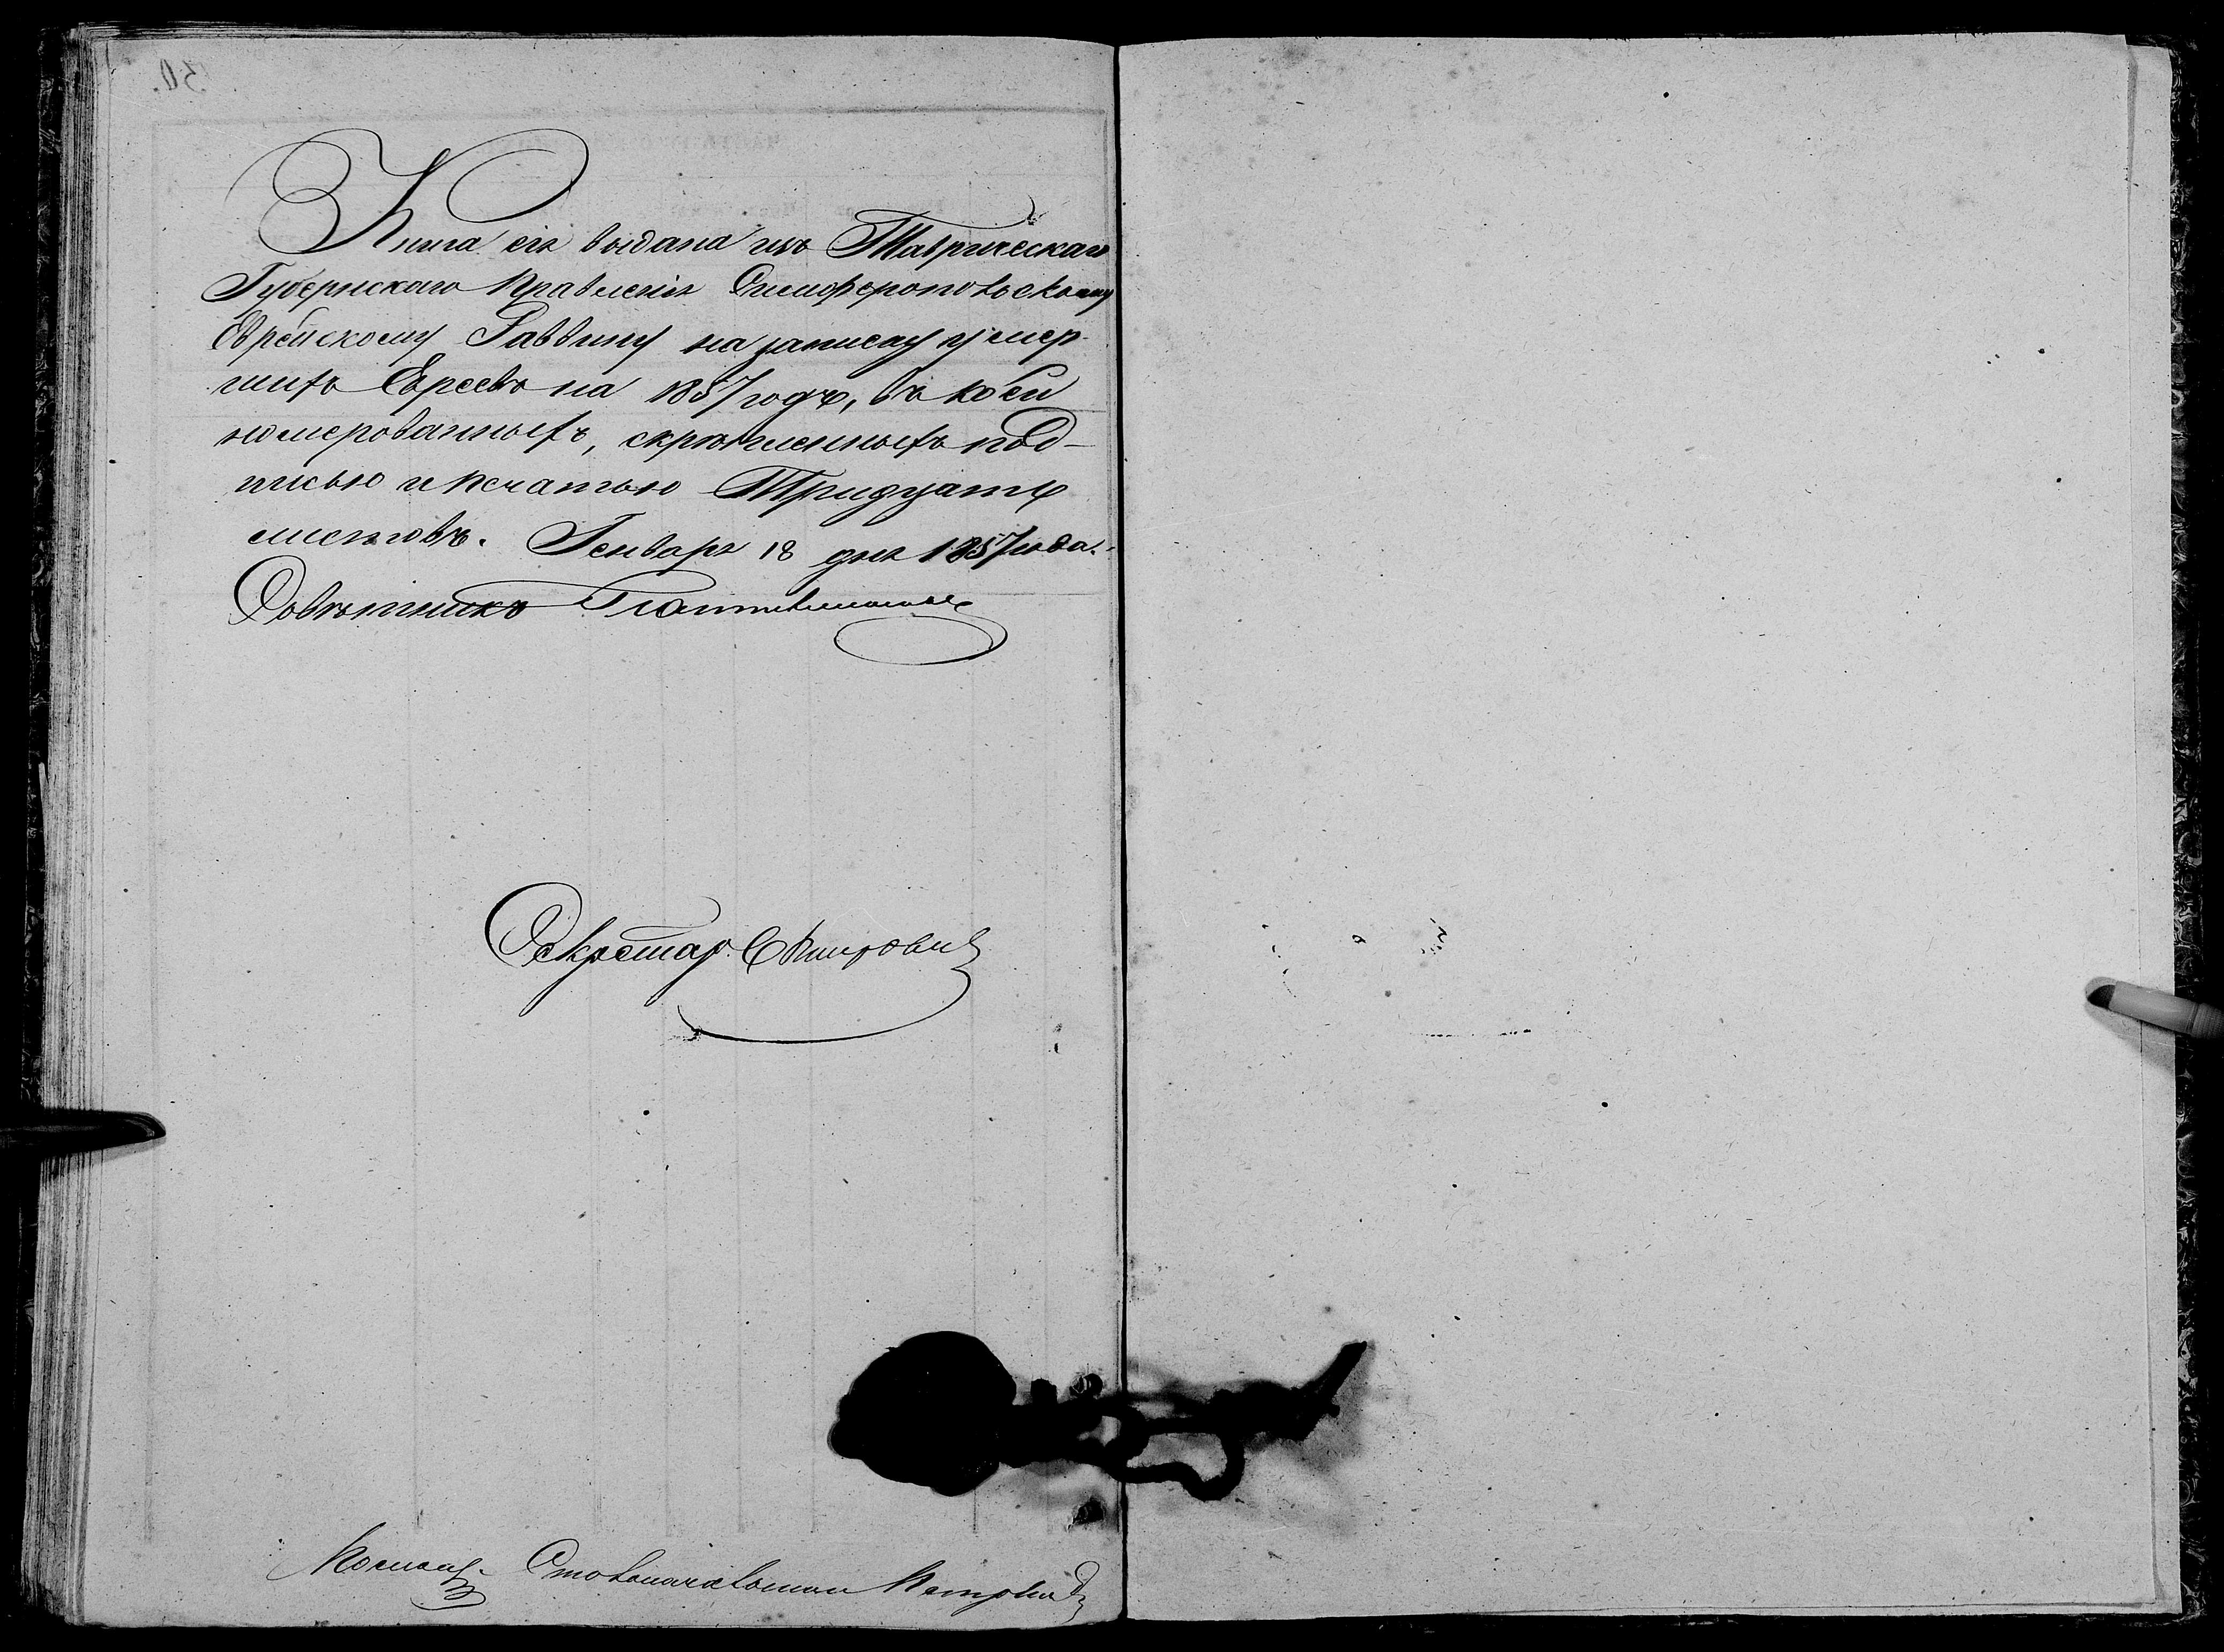 Книга сія выдана изъ Таврическаго
Губернскаго Правленія Симферопольскому
Еврейскому Раввину на записку умер-
шихъ Евреевъ на 1857 годъ, въ коей
номерованныхъ, скрѣпленныхъ под-
писью и печатью Тридцать
листовъ. Генваря 18 дня 1857 года.
Совѣтникъ
Секретарь
Столоначальник